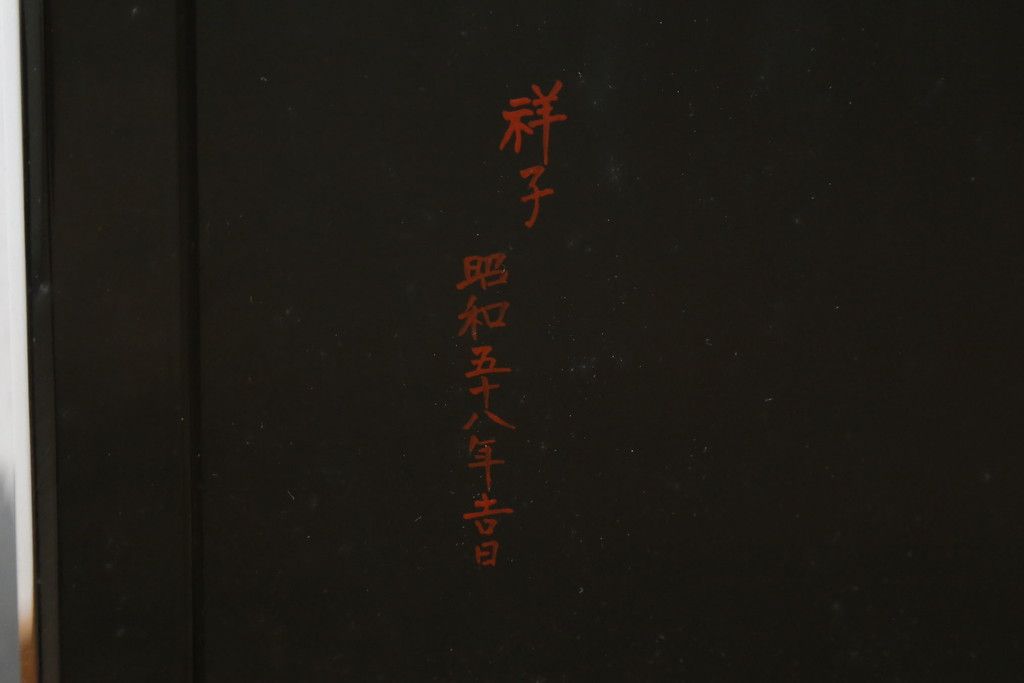 祥子
昭和五十八年吉日